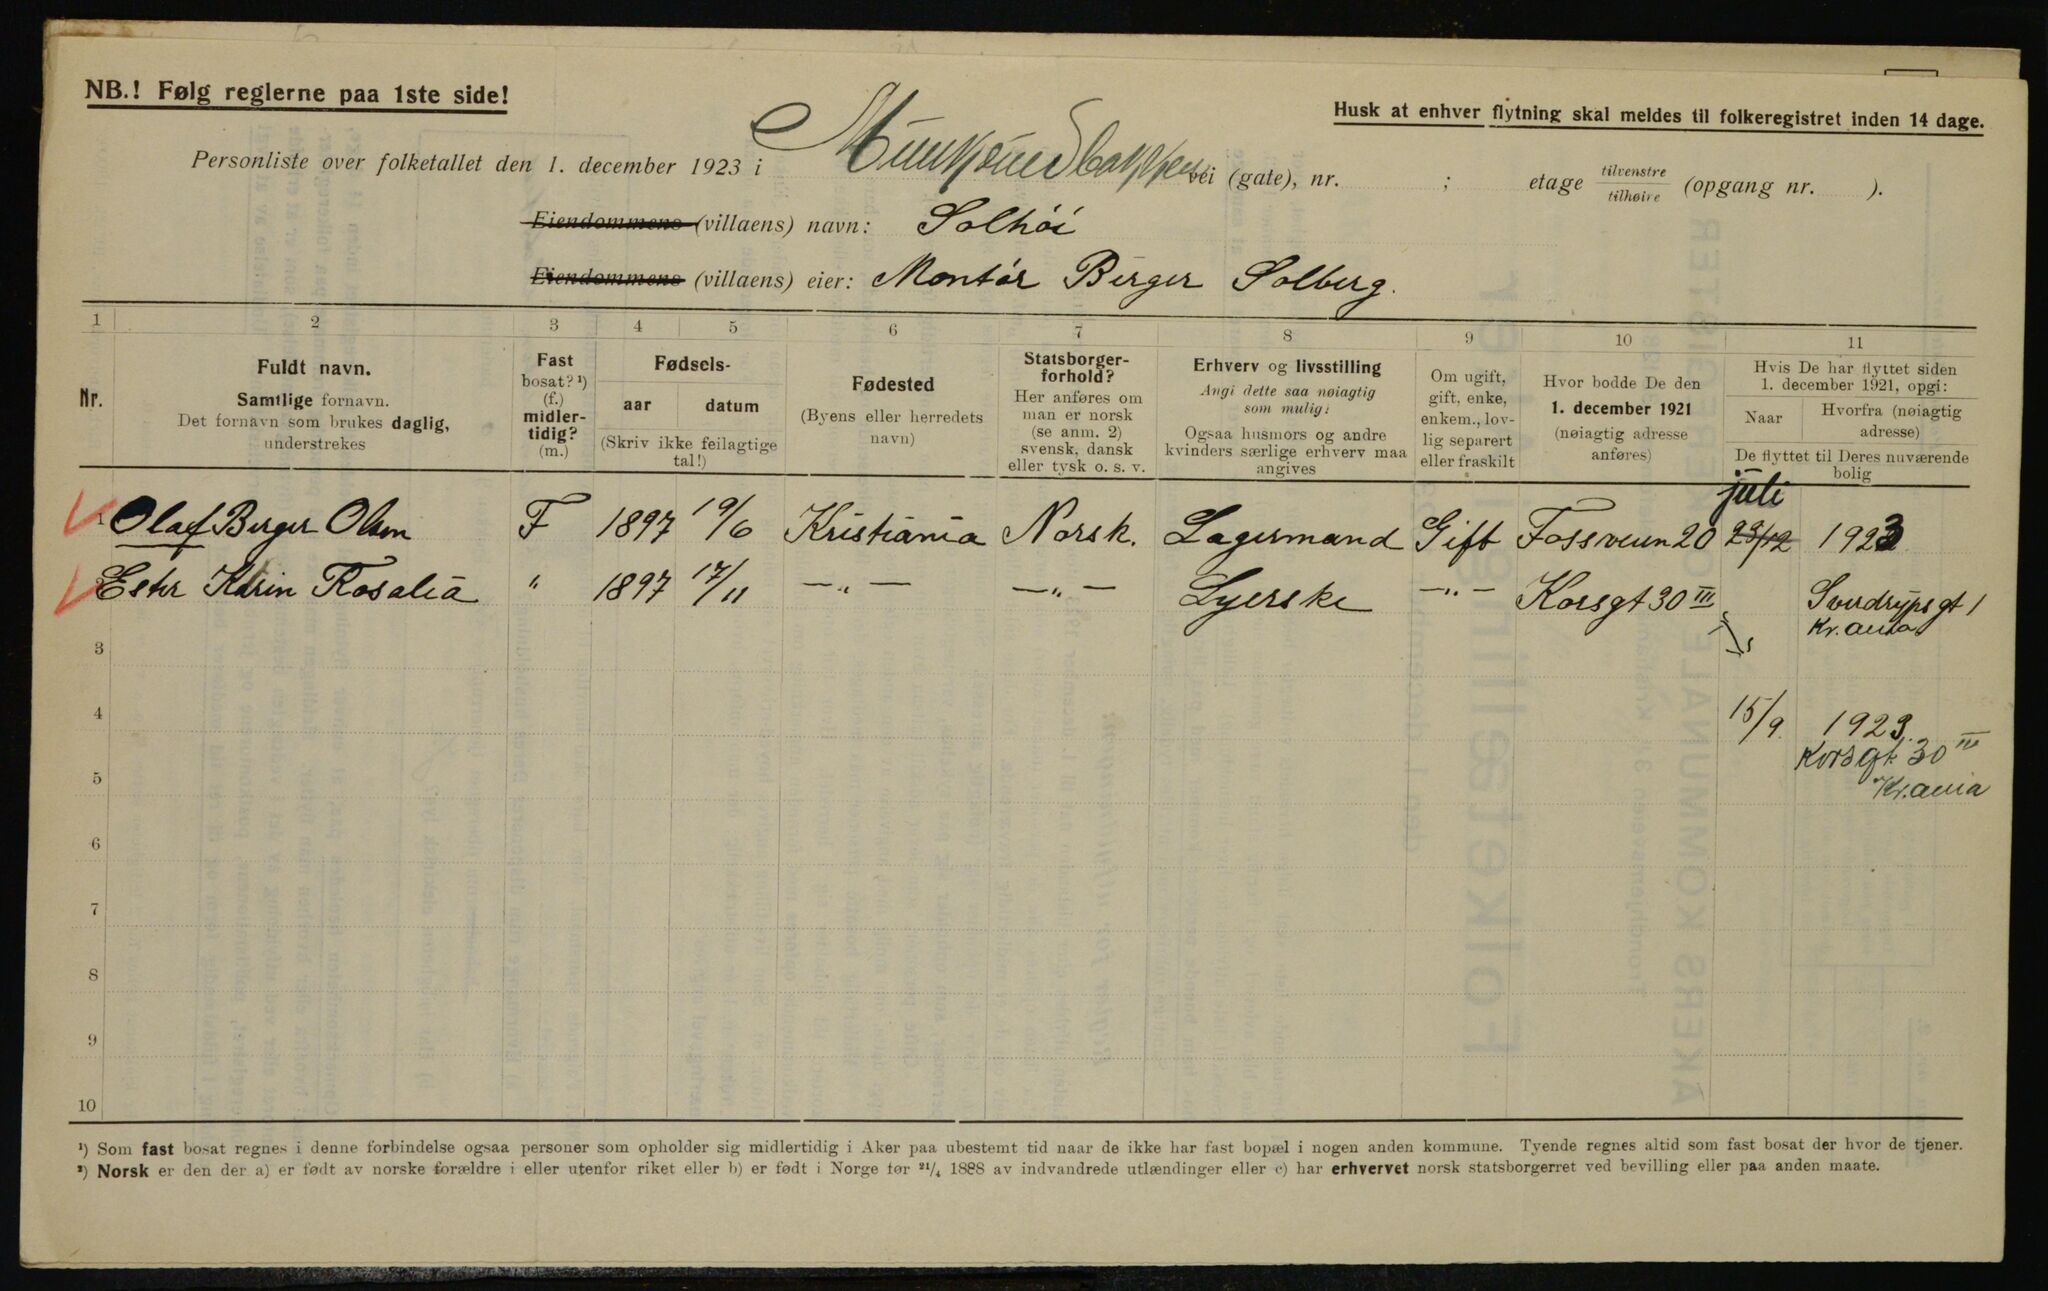 NB.! Følg reglerne paa 1ste side!
Husk at enhver flytning skal meldes til folkeregistret inden 14 dage.
Personliste over folketallet den 1. december 1923 i vei (gate), nr. ; etage tilvenstre tilhøire (opgang nr. ).
Eiendommens (villaens) navn: Solhöi
Eiendommens (villaens) eier: Montør Birger Solberg.
1 2 3 4 5 6 7 8 9 10 11
Nr.
Fuldt navn.
Samtlige fornavn.
Det fornavn som brukes daglig, understrekes
Fast bosat? ¹) (f.) midlertidig? (m.)
Fødsels-
aar datum
(Skriv ikke feilagtige tal!)
Fødested
(Byens eller herredets navn)
Statsborgerforhold?
Her anføres om man er norsk (se anm. 2) svensk, dansk eller tysk o. s. v.
Erhverv og livsstilling
Angi dette saa nøiagtig som mulig:
Ogsaa husmors og andre kvinders særlige erhverv maa angives
Om ugift, gift, enke, enkem., lovlig separert eller fraskilt
Hvor bodde De den 1. december 1921 (nøiagtig adresse anføres)
Hvis De har flyttet siden 1. december 1921, opgi:
Naar
Hvorfra (nøiagtig adresse)
De flyttet til Deres nuværende bolig
juli
1 Olaf Berger Olsen F 1897 19/6 Kristiania Norsk. Lagermand Gift Fossveien 20 23/12 1923
Ester Karin Rosalia " 1897 17/11 —„— —„— Syerske —„— Korsgt 30 III Sverdrups gt 1
Kr.ania
3
4 15/9. 1923.
Korsgt. 30 III
5 Kr.ania
6
7
8
9
10
¹) Som fast bosat regnes i denne forbindelse ogsaa personer som opholder sig midlertidig i Aker paa ubestemt tid naar de ikke har fast bopæl i nogen anden kommune. Tyende regnes altid som fast bosat der hvor de tjener.
²) Norsk er den der a) er født av norske forældre i eller utenfor riket eller b) er født i Norge før 21/4 1888 av indvandrede utlændinger eller c) har erhvervet norsk statsborgerret ved bevilling eller paa anden maate.